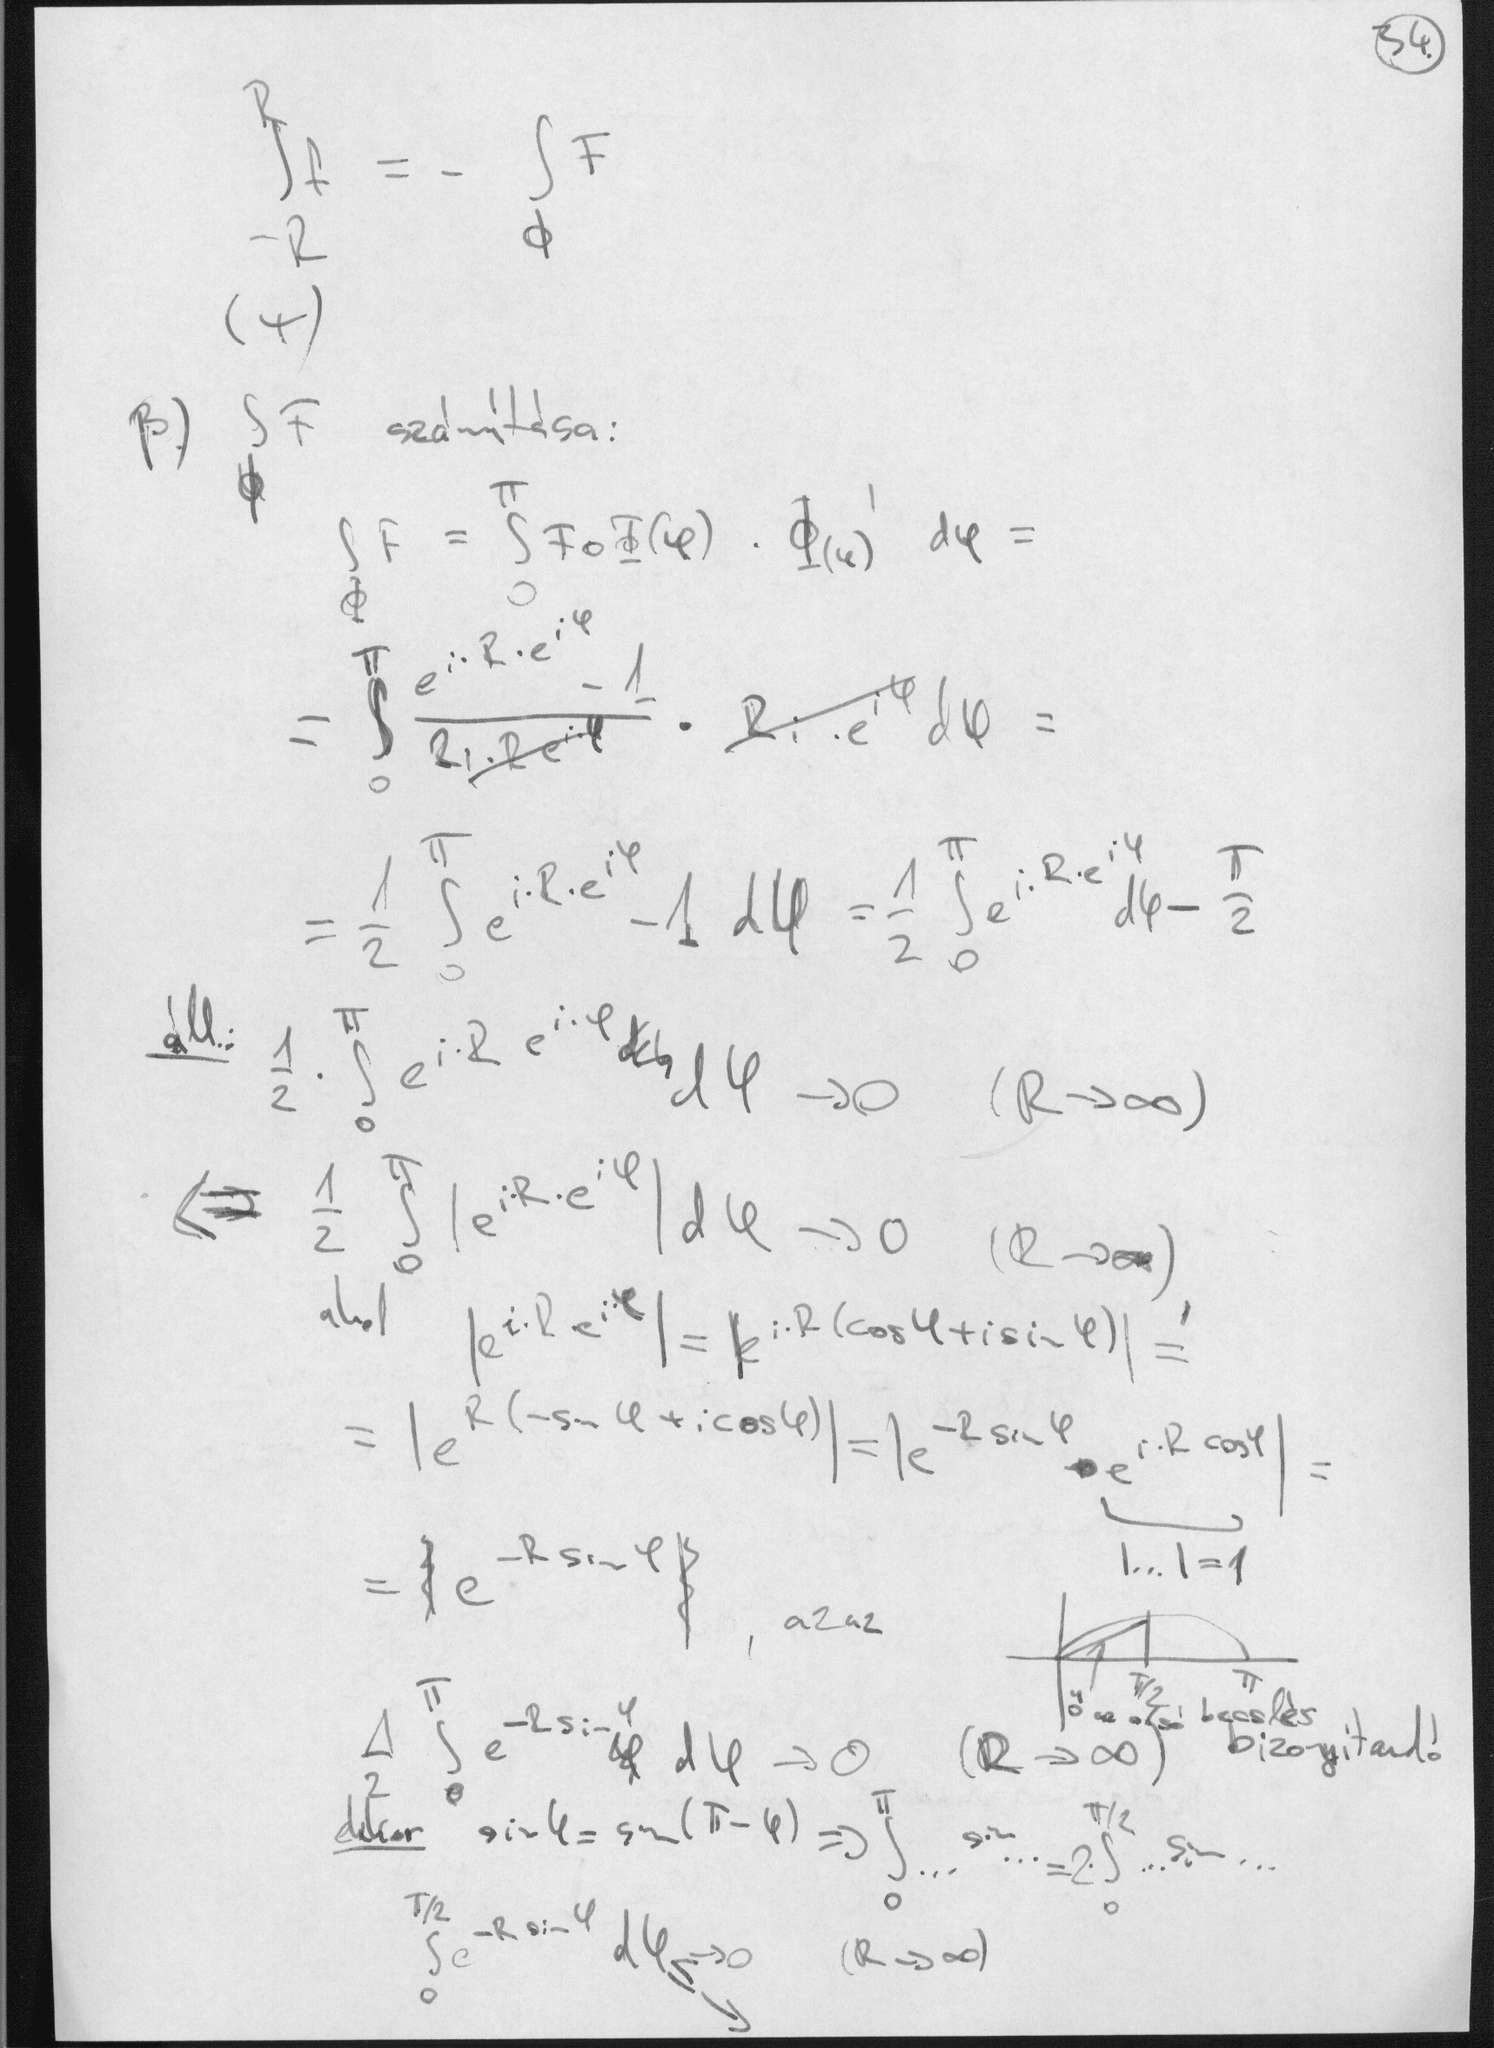 34.
∫_{-R}^{R} f = - ∫_Φ F
(+)
β.) ∫_Φ F számítása:
∫_Φ F = ∫_0^π F∘Φ(φ) · Φ(φ)' dφ =
= ∫_0^π (e^{i·R·e^{iφ}} - 1)/(2i·R e^{i·φ}) · R i·e^{iφ} dφ =
= 1/2 ∫_0^π e^{i·R·e^{iφ}} - 1 dφ = 1/2 ∫_0^π e^{i·R·e^{iφ}} dφ - π/2
áll.: 1/2 · ∫_0^π e^{i·R e^{i·φ}} dφ → 0 (R → ∞)
⇐ 1/2 ∫_0^π |e^{i·R·e^{iφ}}| dφ → 0 (R → ∞),
ahol |e^{i·R e^{i·φ}}| = |e^{i·R(cosφ + i sinφ)}| =
= |e^{R(-sinφ + i cosφ)}| = |e^{-R sinφ} · e^{i·R cosφ}| =
|...| = 1
= e^{-R sinφ}, azaz
π/2 π
becslés
1/2 ∫_0^π e^{-R sinφ} dφ → 0 (R → ∞) bizonyítandó.
sinφ = sin(π-φ) ⇒ ∫_0^π ... sin ... = 2·∫_0^{π/2} ... sin ...
∫_0^{π/2} e^{-R sinφ} dφ → 0 (R → ∞)